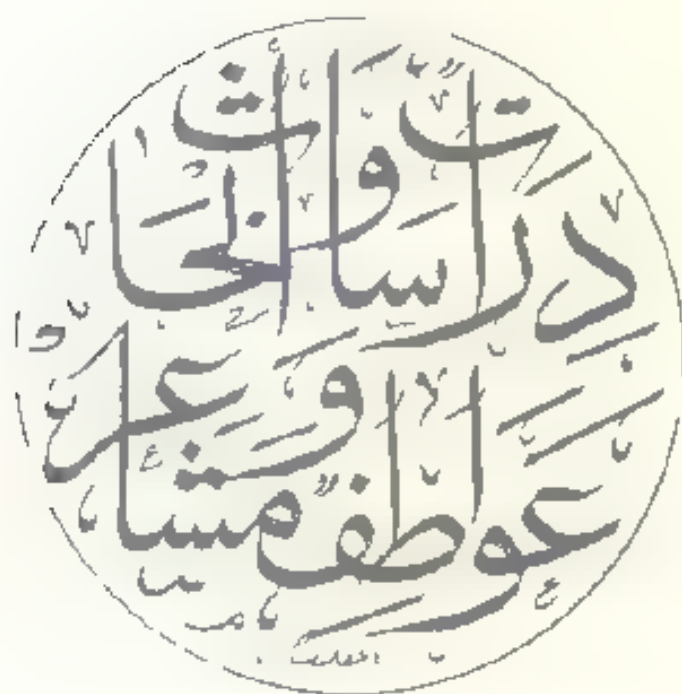 دِرَاسَاتٌ وَأَبْحَاثٌ
عَوَاطِفٌ وَمَشَاعِر